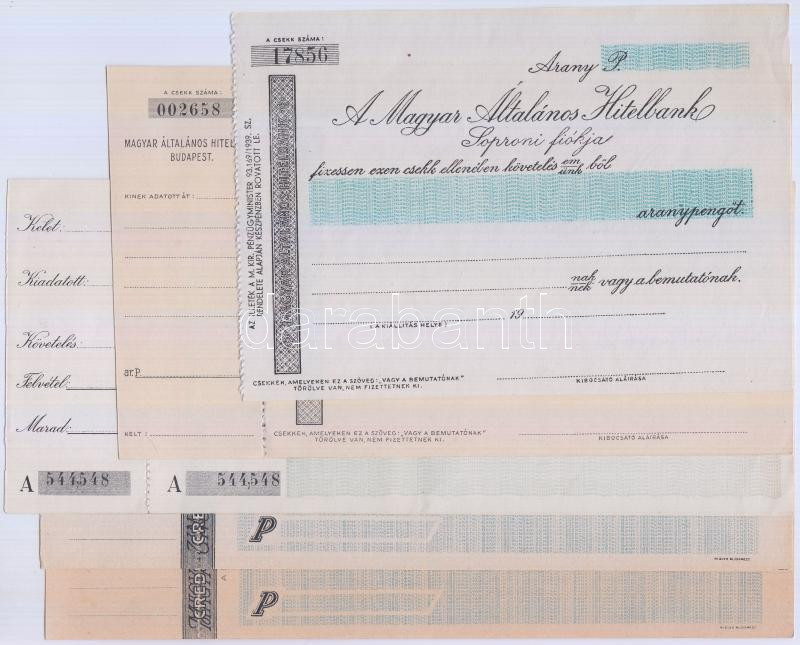 A CSEKK SZÁMA:
17856
Arany P.
A Magyar Általános Hitelbank
Soproni fiókja
fizessen ezen csekk ellenében követelés em/ünk ből
aranypengőt.
nak/nek vagy a bemutatónak.
19
(A KIÁLLÍTÁS HELYE)
CSEKKEK, AMELYEKEN EZ A SZÖVEG: „VAGY A BEMUTATÓNAK"
TÖRÖLVE VAN, NEM FIZETTETNEK KI.
KIBOCSÁTÓ ALÁÍRÁSA
AZ ILLETÉK A M. KIR. PÉNZÜGYMINISTER 93.169/1939. SZ.
RENDELETE ALAPJÁN KÉSZPÉNZBEN ROVATOTT LE.
A MAGYAR ÁLTALÁNOS HITELBANK
A CSEKK SZÁMA:
002658
MAGYAR ÁLTALÁNOS HITEL
BUDAPEST.
KINEK ADATOTT ÁT:
ar.P.
KELT:
CSEKKEK, AMELYEKEN EZ A SZÖVEG: „VAGY A BEMUTATÓNAK"
TÖRÖLVE VAN, NEM FIZETTETNEK KI.
KIBOCSÁTÓ ALÁÍRÁSA
Kelet:
Kiadatott:
Követelés:
Felvétel:
Marad:
A 544,548
A 544,548
CRE
P
CREDI
A
P
darabanth